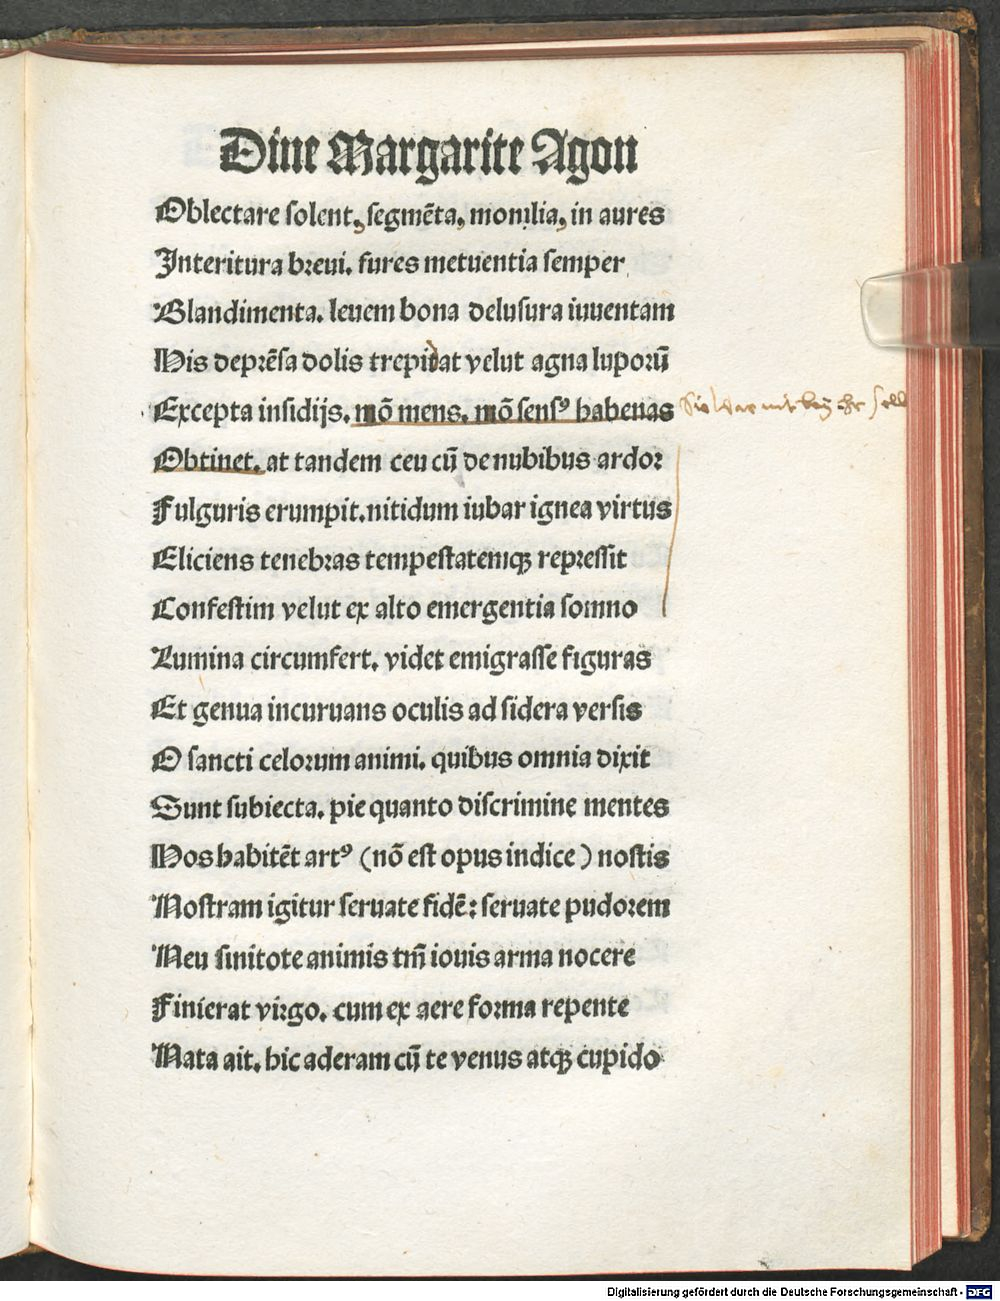 Dine Margarite Agon
Oblectare solent, segmēta, monilia, in aures
Interitura breui. fures metuentia semper
Blandimenta. leuem bona delusura iuuentam
His deprēsa dolis trepidat velut agna luporū
Excepta insidijs. mō mens. mō sensꝰ habenas
Sie war nit bey ihr sell
Obtinet. at tandem ceu cū de nubibus ardor
Fulguris erumpit. nitidum iubar ignea virtus
Eliciens tenebras tempestatemqꝫ repressit
Confestim velut ex alto emergentia somno
Lumina circumfert. videt emigrasse figuras
Et genua incuruans oculis ad sidera versis
O sancti celorum animi. quibus omnia dixit
Sunt subiecta. pie quanto discrimine mentes
Nos habitēt artꝰ (nō est opus indice) nostis
Nostram igitur seruate fidē: seruate pudorem
Neu sinitote animis tm̄ iouis arma nocere
Finierat virgo. cum ex aere forma repente
Nata ait. hic aderam cū te venus atqꝫ cupido
Digitalisierung gefördert durch die Deutsche Forschungsgemeinschaft - DFG